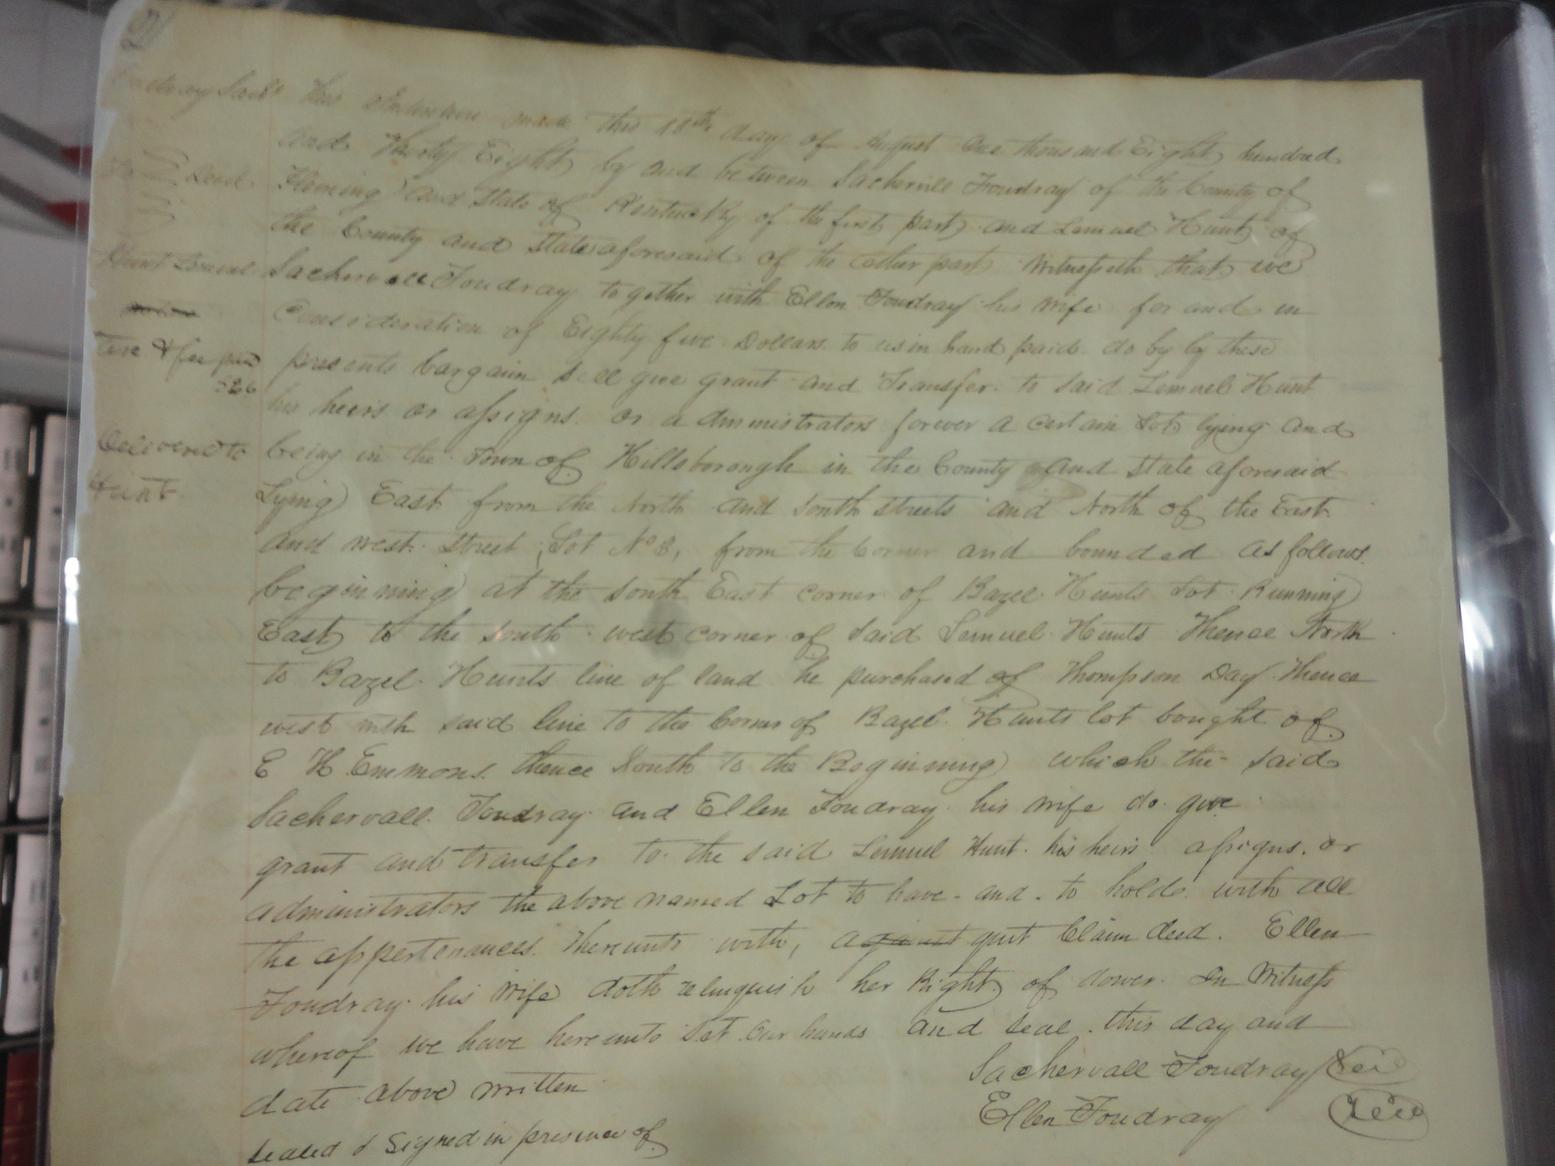 This Indenture made this 18th day of August One thousand Eight hundred
and Thirty Eight by and between Sachervill Foudray of the County of
Fleming and State of Kentucky of the first part and Lemuel Hunt of
the County and State aforesaid of the other part Witnesseth that we
Sachervall Foudray together with Ellen Foudray his wife for and in
Consideration of Eighty five Dollars to us in hand paid do by by these
presents bargain sell give grant and Transfer to said Lemuel Hunt
his heirs or assigns or administrators forever a certain Lot lying and
being in the Town of Hillsborough in the County and State aforesaid
Lying East from the North and South streets and North of the East
and west Street Lot No 8, from the Corner and bounded as follows
beginning at the South East corner of Bazel Hunts Lot Running
East to the South west corner of said Lemuel Hunts Thence North
to Bazel Hunts line of land he purchased of Thompson Day Thence
west with said line to the Corner of Bazel Hunts lot bought of
E H Emmons thence South to the Beginning which the said
Sachervall Foudray and Ellen Foudray his wife do give
grant and transfer to the said Lemuel Hunt his heirs assigns or
administrators the above named Lot to have and to hold with all
the appertenances thereunto with, against quit Claim deed. Ellen
Foudray his wife doth relinquish her Right of dower In Witness
whereof we have hereunto set our hands and seal this day and
date above written
Sachervall Foudray
Ellen Foudray
Sealed & Signed in presence of
Deed
Hunt Lemuel
526
Delivered to
Hunt